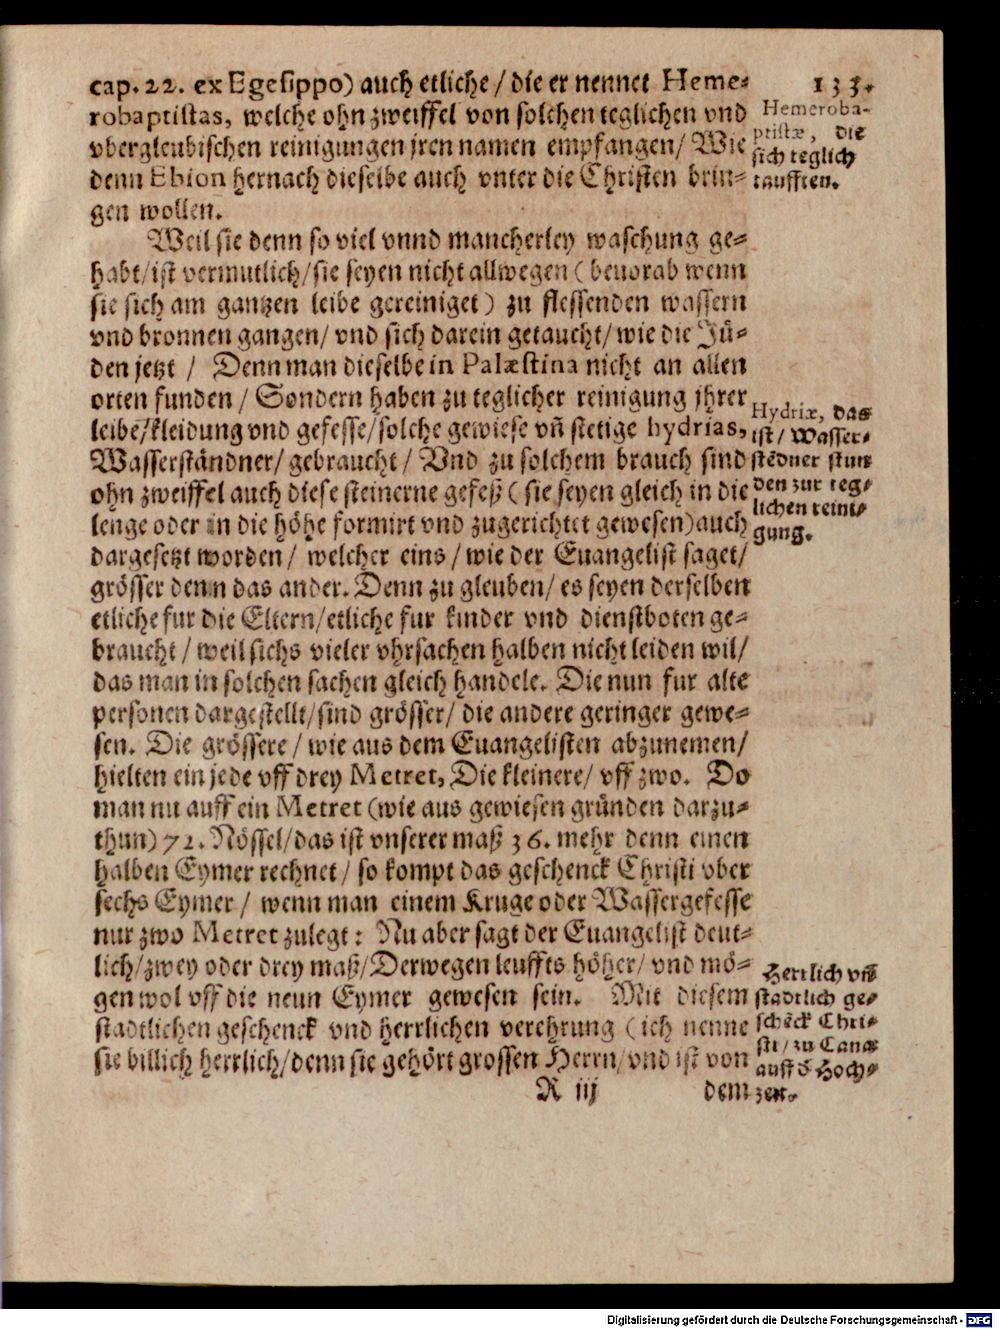 133.
cap. 22. ex Egesippo) auch etliche / die er nennet Heme-
robaptistas, welche ohn zweiffel von solchen teglichen vnd
vbergleubischen reinigungen jren namen empfangen / Wie
denn Ebion hernach dieselbe auch vnter die Christen brin-
gen wollen.
Hemeroba-
ptistæ, die
sich teglich
taufften.
Weil sie denn so viel vnnd mancherley waschung ge-
habt / ist vermutlich / sie seyen nicht allwegen (beuorab wenn
sie sich am gantzen leibe gereiniget) zu flessenden wassern
vnd bronnen gangen / vnd sich darein getaucht / wie die Jü-
den jetzt / Denn man dieselbe in Palæstina nicht an allen
orten funden / Sondern haben zu teglicher reinigung jhrer
leibe / kleidung vnd gefesse / solche gewiese vñ stetige hydrias,
Wasserständner / gebraucht / Vnd zu solchem brauch sind
ohn zweiffel auch diese steinerne gefeß (sie seyen gleich in die
lenge oder in die höhe formirt vnd zugerichtet gewesen) auch
dargesetzt worden / welcher eins / wie der Euangelist saget /
grösser denn das ander. Denn zu gleuben / es seyen derselben
etliche fur die Eltern / etliche fur kinder vnd dienstboten ge-
braucht / weil sichs vieler vhrsachen halben nicht leiden wil /
das man in solchen sachen gleich handele. Die nun fur alte
personen dargestellt / sind grösser / die andere geringer gewe-
sen. Die grössere / wie aus dem Euangelisten abzunemen /
hielten ein jede vff drey Metret, Die kleinere / vff zwo. Do
man nu auff ein Metret (wie aus gewiesen gründen darzu-
thun) 72. Nössel / das ist vnserer maß 36. mehr denn einen
halben Eymer rechnet / so kompt das geschenck Christi vber
sechs Eymer / wenn man einem Kruge oder Wassergefesse
nur zwo Metret zulegt: Nu aber sagt der Euangelist deut-
lich / zwey oder drey maß / Derwegen leuffts höher / vnd mö-
gen wol vff die neun Eymer gewesen sein. Mit diesem
stadtlichen geschenck vnd herrlichen verehrung (ich nenne
sie billich herrlich / denn sie gehört grossen Herrn / vnd ist von
Hydriæ, das
ist / Wasser-
stēdner stun
den zur teg-
lichen reini-
gung.
Herrlich vñ
stadtlich ge-
schēck Chri-
sti / zu Cana
auff ð Hoch-
zeit.
R iij
dem
Digitalisierung gefördert durch die Deutsche Forschungsgemeinschaft - DFG